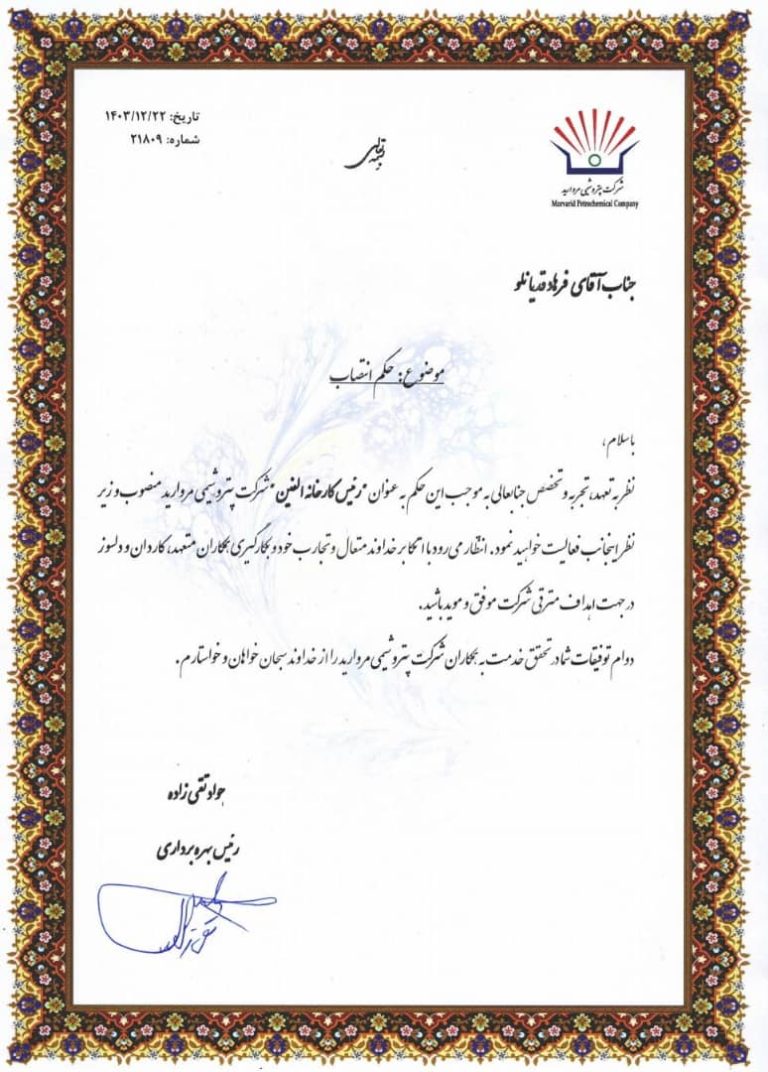 تاریخ: ۱۴۰۳/۱۲/۲۲
شماره: ۲۱۸۰۹
بسمه تعالی
شرکت پتروشیمی مروارید
Morvarid Petrochemical Company
جناب آقای فرهاد قدیانلو
موضوع: حکم انتصاب
با سلام،
نظر به تعهد، تجربه و تخصص جنابعالی به موجب این حکم به عنوان "رئیس کارخانه الفین" شرکت پتروشیمی مروارید منصوب و زیر
نظر اینجانب فعالیت خواهید نمود. انتظار می رود با اتکا بر خداوند متعال و تجارب خود و بکارگیری همکاران متعهد، کاردان و دلسوز
در جهت اهداف مترقی شرکت موفق و موید باشید.
دوام توفیقات شما در تحقق خدمت به همکاران شرکت پتروشیمی مروارید را از خداوند سبحان خواهان و خواستارم.
جواد تقی زاده
رئیس بهره برداری